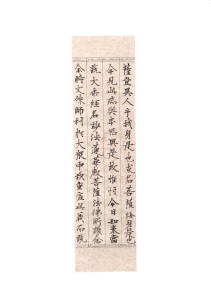 薩豈異人乎我身是也求名菩薩汝身是也
今見此瑞與本無異是故惟忖今日如來當
說大乘經名妙法蓮華教菩薩法佛所護念
尒時文殊師利於大衆中欲重宣此義而說